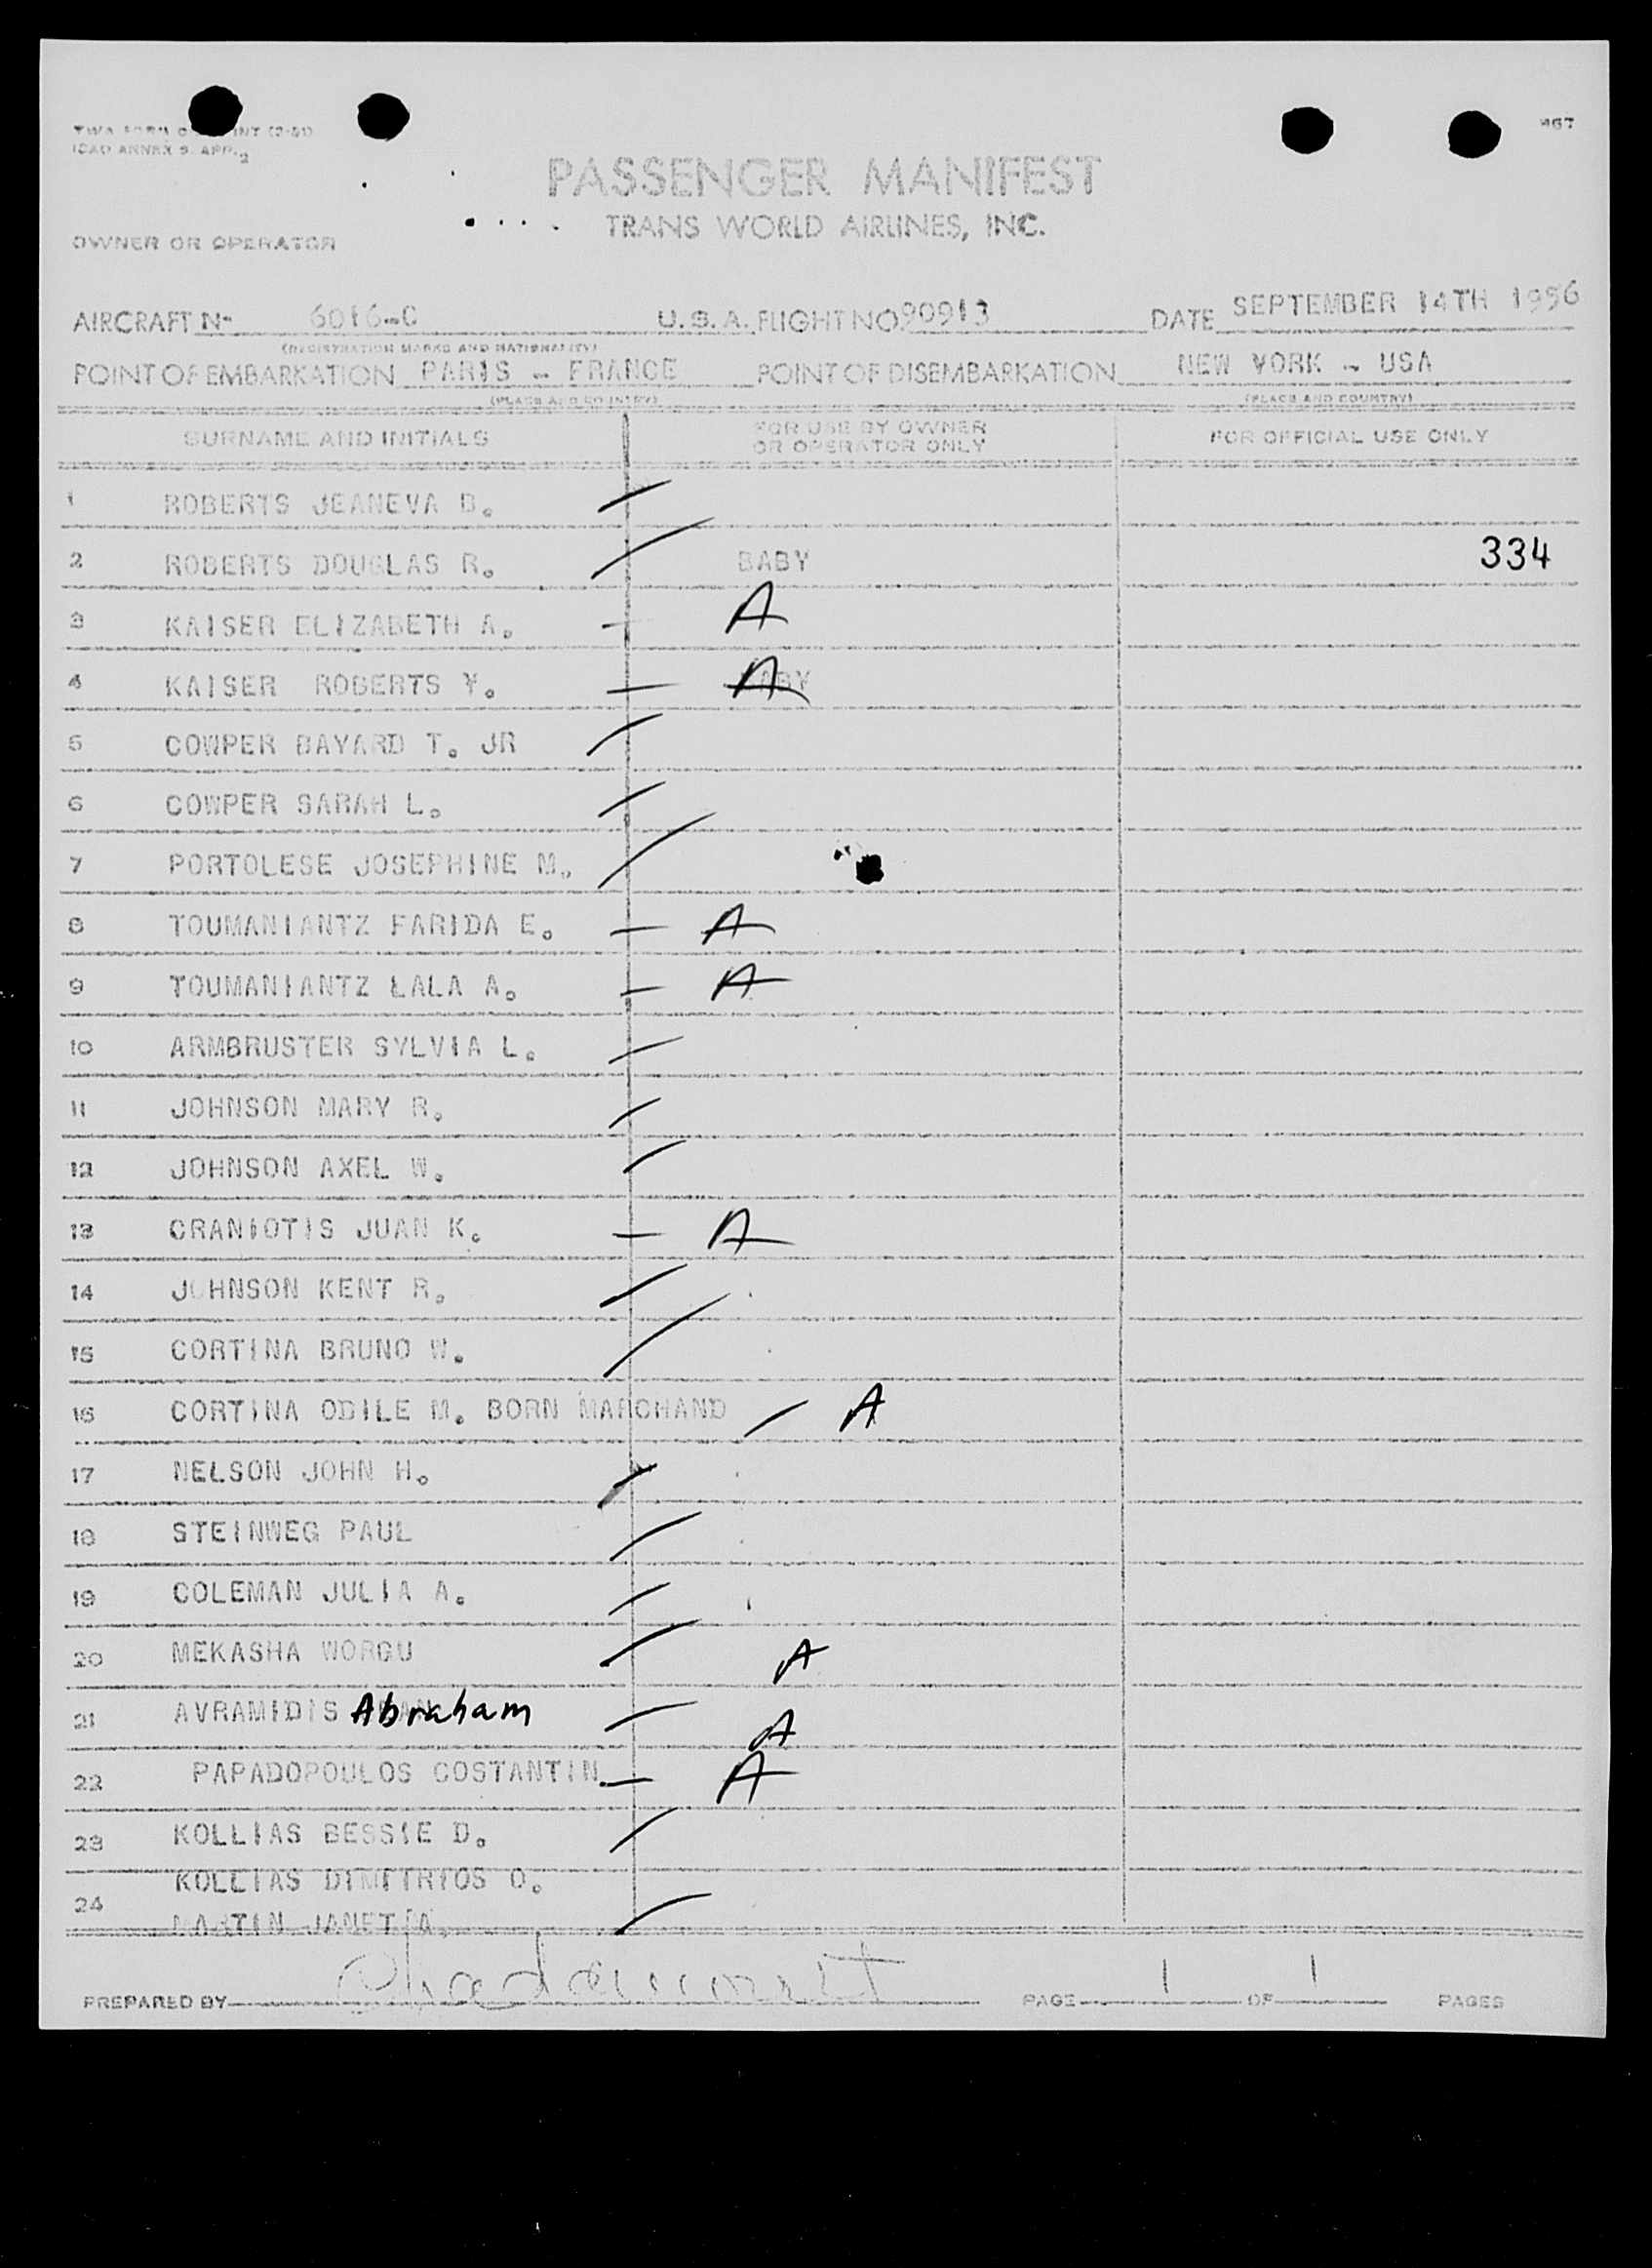 467
ICAO ANNEX 9. APP. 2
PASSENGER MANIFEST
TRANS WORLD AIRLINES, INC.
OWNER OR OPERATOR
AIRCRAFT N- 6016-C U.S.A. FLIGHT NO 90913 DATE SEPTEMBER 14TH 1956
(REGISTRATION MARKS AND NATIONALITY)
POINT OF EMBARKATION PARIS - FRANCE POINT OF DISEMBARKATION NEW YORK - USA
(PLACE AND COUNTRY) (PLACE AND COUNTRY)
SURNAME AND INITIALS FOR USE BY OWNER OR OPERATOR ONLY FOR OFFICIAL USE ONLY
1 ROBERTS JEANEVA B.
2 ROBERTS DOUGLAS R. BABY 334
3 KAISER ELIZABETH A. A
4 KAISER ROBERTS Y. BABY A
5 COWPER BAYARD T. JR
6 COWPER SARAH L.
7 PORTOLESE JOSEPHINE M.
8 TOUMANIANTZ FARIDA E. A
9 TOUMANIANTZ LALA A. A
10 ARMBRUSTER SYLVIA L.
11 JOHNSON MARY R.
12 JOHNSON AXEL W.
13 CRANIOTIS JUAN K. A
14 JOHNSON KENT R.
15 CORTINA BRUNO W.
16 CORTINA ODILE M. BORN MARCHAND A
17 NELSON JOHN H.
18 STEINWEG PAUL
19 COLEMAN JULIA A.
20 MEKASHA WORGU A
21 AVRAMIDIS Abraham A
22 PAPADOPOULOS COSTANTIN A
23 KOLLIAS BESSIE D.
KOLLIAS DIMITRIOS D.
24 MARTIN JANET A.
PREPARED BY PAGE 1 OF 1 PAGES